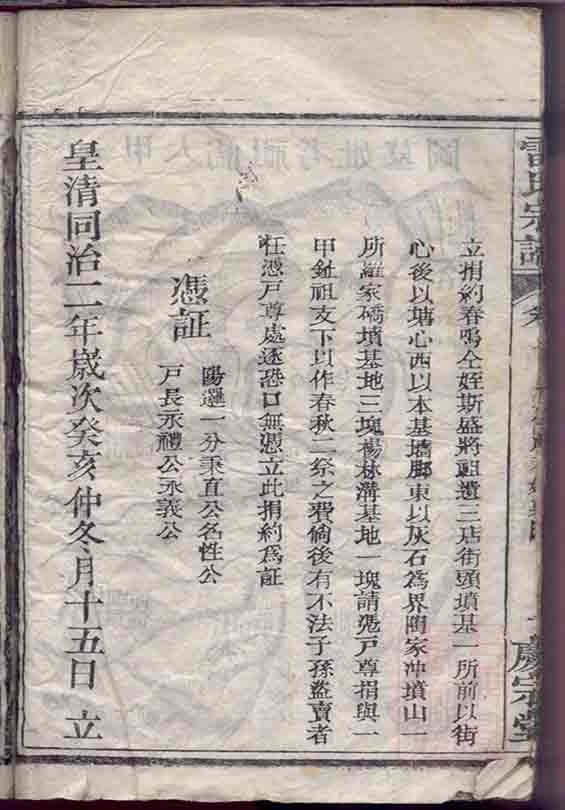 立捐約春鳴仝姪斯盛將祖遺三店街頭墳基一所前以街
心後以塘心西以本基墻腳東以灰石為界陶家冲墳山一
所羅家磚墳基地三塊楊林溝基地一塊請憑戶尊捐與一
甲鉦祖支下以作春秋二祭之費倘後有不法子孫盜賣者
任憑戶尊處逐恐口無憑立此捐約為証
憑証
陽邏一分秉直公名性公
戶長永禮公永義公
皇清同治二年歲次癸亥仲冬月十五日 立
雷氏宗譜
慶宗堂